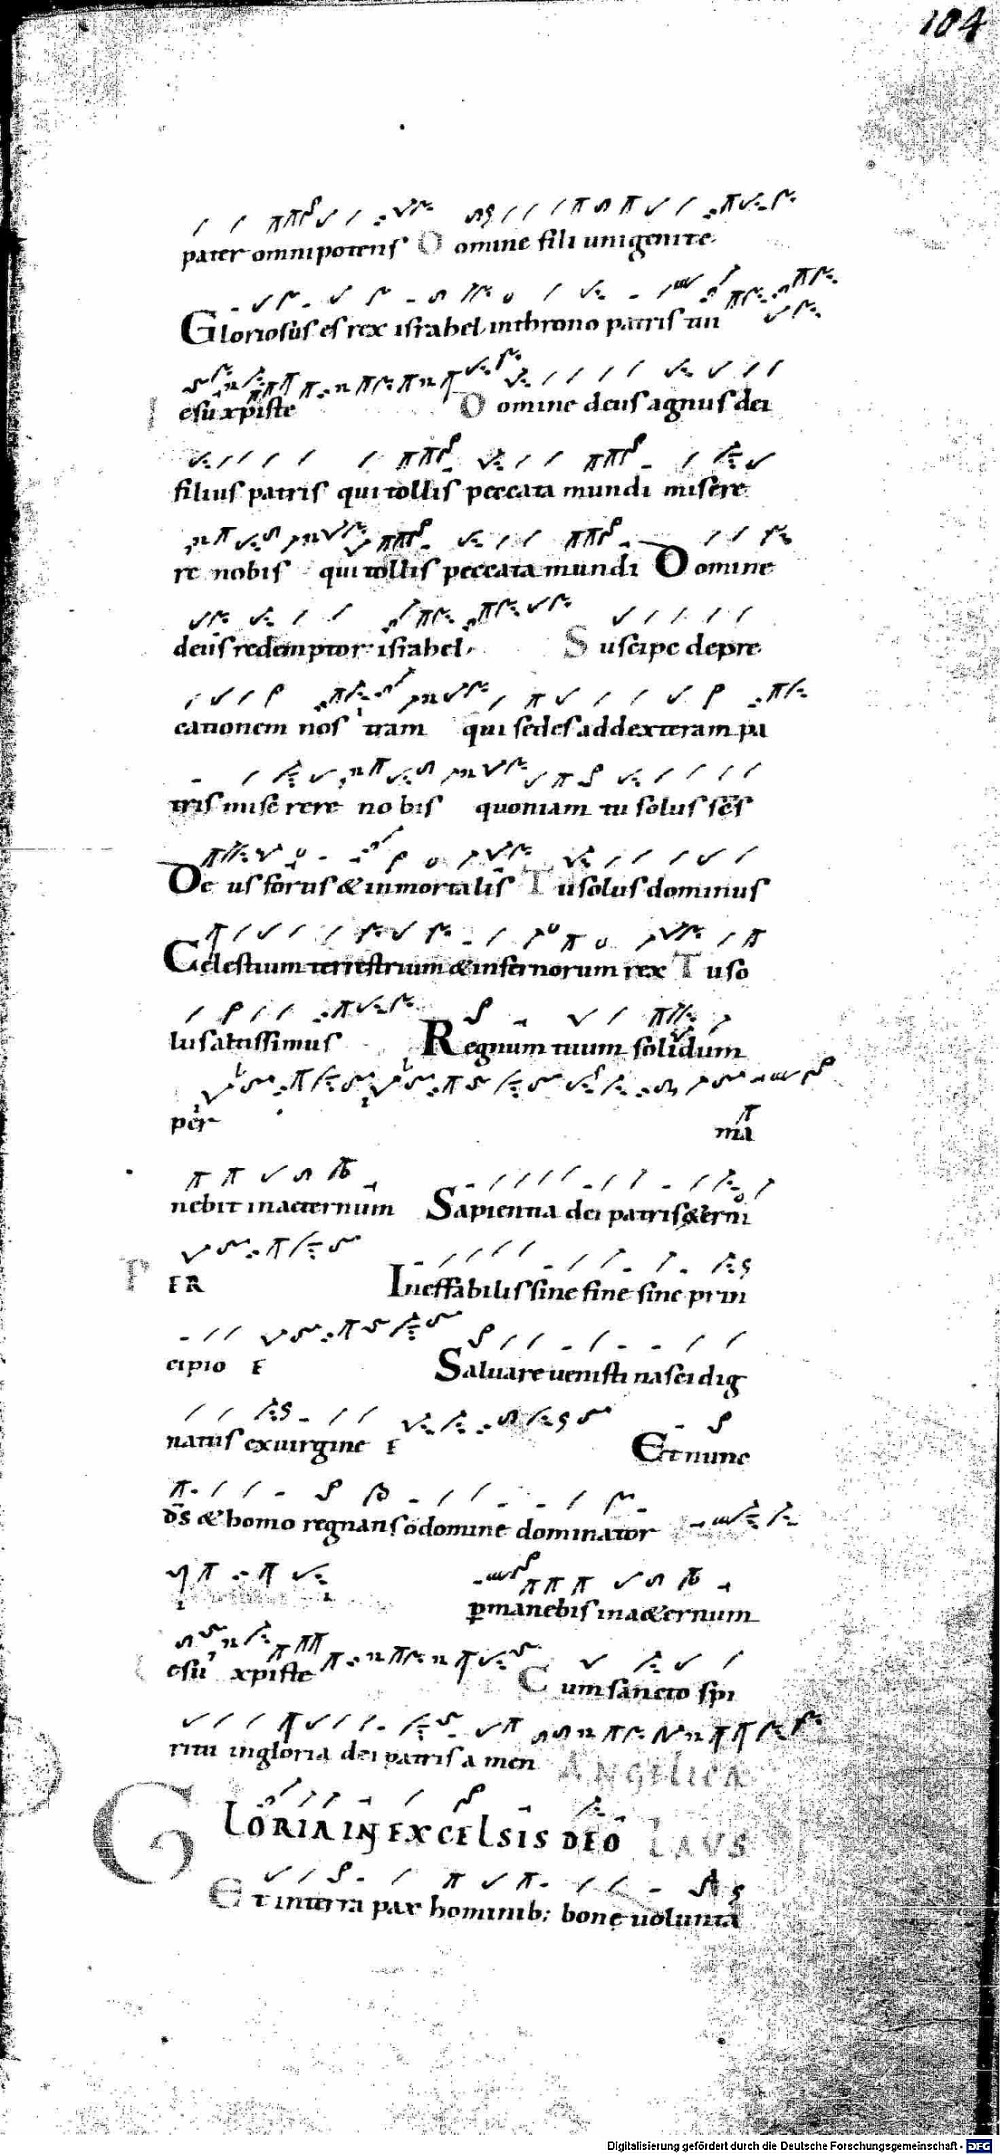 104
pater omnipotens Domine fili unigenite.
Gloriosus es rex israhel in throno patris tui
Iesu xpiste Domine deus agnus dei
filius patris qui tollis peccata mundi misere
re nobis qui tollis peccata mundi Domine
deus redemptor israhel. Suscipe depre
cationem nostram qui sedes ad dexteram pa
tris miserere nobis quoniam tu solus scs
Deus fortis & inmortalis Tu solus dominus
Celestium terrestrium & infernorum rex Tu so
lus altissimus Regnum tuum solidum
per ma
nebit in aeternum Sapientia dei patris &erni
PER Ineffabilis sine fine sine prin
cipio E Saluare uenisti nasci dig
natus ex uirgine E Et nunc
ds & homo regnans o domine dominator
pmanebis in a&ernum
Iesu xpiste Cum sancto spi
ritu in gloria dei patris amen ANGELICA
GLORIA IN EXCELSIS DEO LAUS
Et in terra pax hominib; bone uolunta
Digitalisierung gefördert durch die Deutsche Forschungsgemeinschaft - DFG